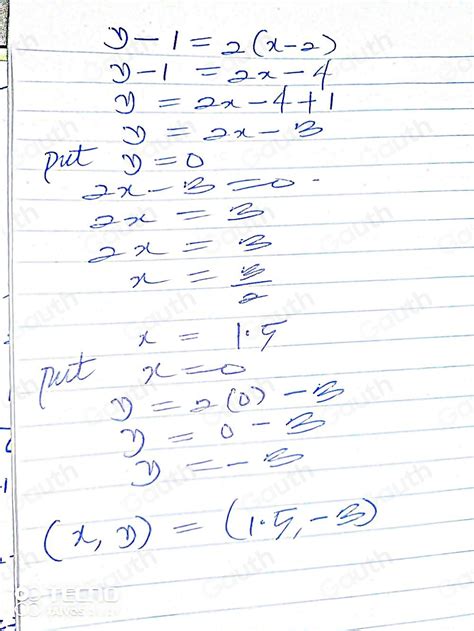 y - 1 = 2(x-2)
y - 1 = 2x - 4
y = 2x - 4 + 1
y = 2x - 3
put y = 0
2x - 3 = 0
2x = 3
2x = 3
x = 3/2
x = 1.5
put x = 0
y = 2(0) - 3
y = 0 - 3
y = -3
(x, y) = (1.5, -3)
TECNO